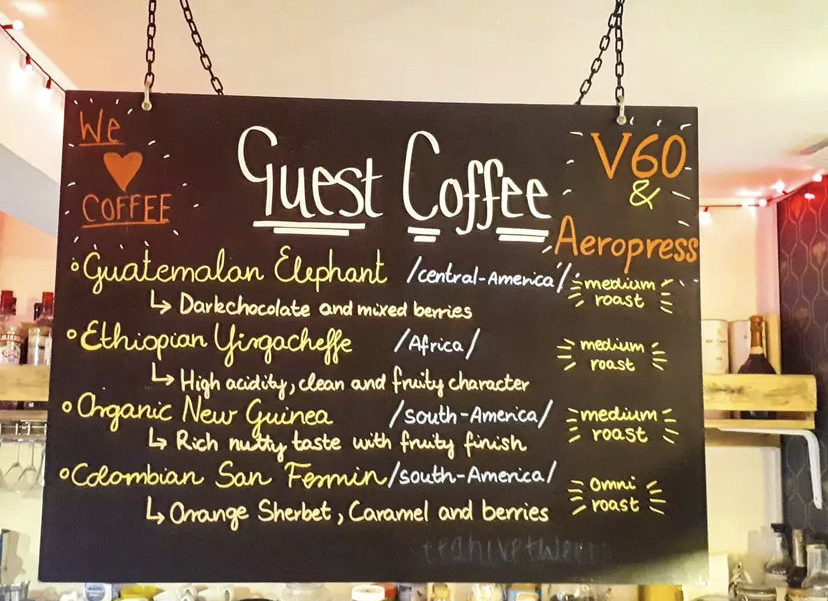 We
♥
COFFEE
Guest Coffee
V60
&
Aeropress
Guatemalan Elephant /central-America/ medium roast
↳ Darkchocolate and mixed berries
Ethiopian Yirgacheffe /Africa/ medium roast
↳ High acidity, clean and fruity character
Organic New Guinea /south-America/ medium roast
↳ Rich nutty taste with fruity finish
Colombian San Fermin /south-America/ omni roast
↳ Orange Sherbet, Caramel and berries